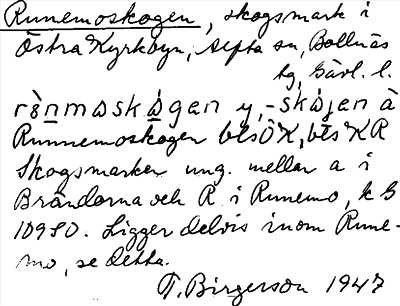 Runemoskogen, skogsmark i
Östra Kyrkbyn, Alfta sn, Bollnäs
tg, Gävl. l.
Runnemoskogen bts ÖK, bts KR
Skogsmarken ung. mellan a i
Brändorna och R i Runemo, k G
10980. Ligger delvis inom Rune-
mo, se detta.
T. Birgerson 1947